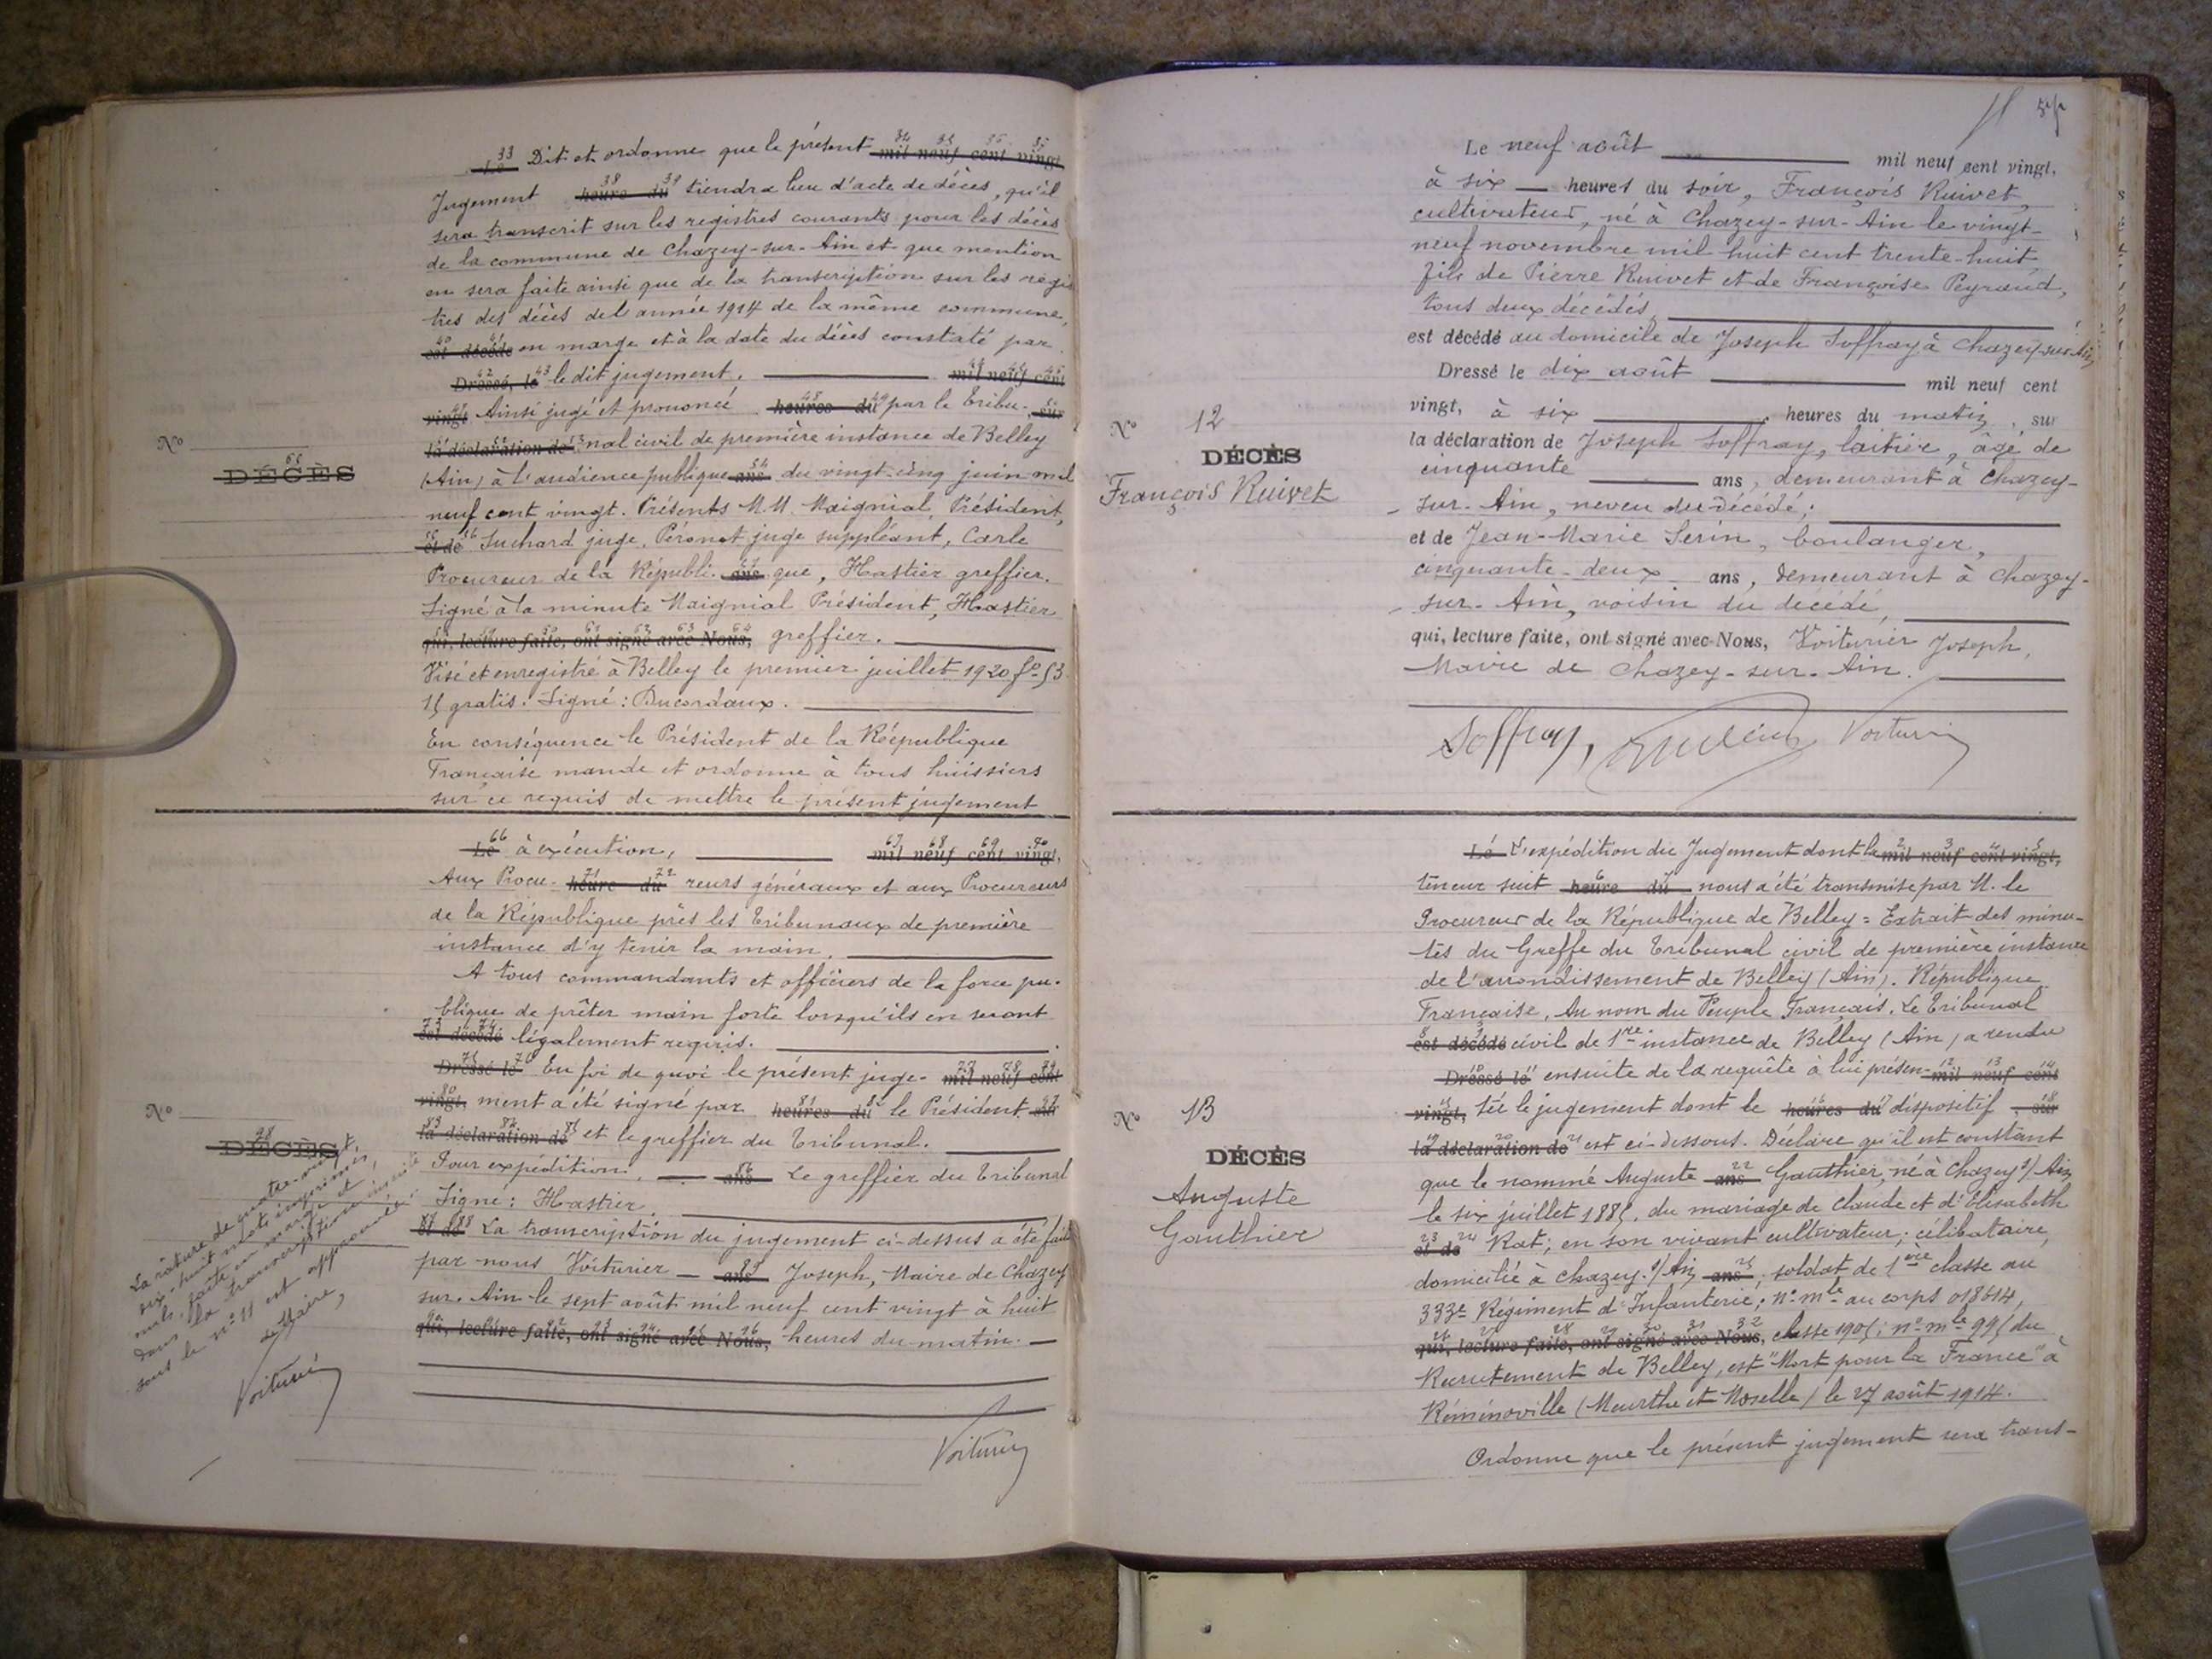 Le Dit et ordonne que le présent mil neuf cent vingt
Jugement heure du tiendra lieu d'acte de décès, qu'il
sera transcrit sur les registres courants pour les décès
de la commune de Chazey-sur-Ain et que mention
en sera faite ainsi que de la transcription sur les regis
tres des décès de l'année 1914 de la même commune,
est décédé en marge et à la date du décès constaté par
Dressé, le le dit jugement. mil neuf cent
vingt Ainsi jugé et prononcé heures du par le Tribu- sur
la déclaration de nal civil de première instance de Belley
(Ain) à l'audience publique ans du vingt-cinq juin mil
neuf cent vingt. Présents M.M. Maignial, Président,
et de Suchard juge, Péronet juge suppléant, Carle
Procureur de la Républi. ans que, Hastier greffier.
Signé à la minute Maignial Président, Hastier
qui, lecture faite, ont signé avec Nous, greffier.
Visé et enregistré à Belley le premier juillet 1920 fo 53
15 gratis. Signé: Ducordaux.
En conséquence le Président de la République
Française mande et ordonne à tous huissiers
sur ce requis de mettre le présent jugement
No
DÉCÈS
Le à exécution, mil neuf cent vingt,
Aux Procu- heure du reurs généraux et aux Procureurs
de la République près les Tribunaux de première
instance d'y tenir la main.
A tous commandants et officiers de la force pu-
blique de prêter main forte lorsqu'ils en seront
est décédé légalement requis.
Dressé le En foi de quoi le présent juge- mil neuf cent
vingt, ment a été signé par heures du le Président sur
la déclaration de et le greffier du Tribunal.
Pour expédition. ans Le greffier du Tribunal
Signé: Hastier.
et de La transcription du jugement ci-dessus a été faite
par nous Voiturier ans Joseph, Maire de Chazey
sur-Ain le sept août mil neuf cent vingt à huit
qui, lecture faite, ont signé avec Nous, heures du matin.
Voiturier
No
DÉCÈS
La râture de quatre-vingt-
dix-huit mots imprimés,
nuls, faite en marge et
dans la transcription inscrite
sous le no 11 est approuvée.
Le Maire,
Voiturier
Le neuf août mil neuf cent vingt,
à six heures du soir, François Ruivet,
cultivateur, né à Chazey-sur-Ain le vingt-
neuf novembre mil huit cent trente-huit
fils de Pierre Ruivet et de Françoise Peyraud,
tous deux décédés,
est décédé au domicile de Joseph Soffray à Chazey-sur-Ain
Dressé le dix août mil neuf cent
vingt, à six heures du matin, sur
la déclaration de Joseph Soffray, laitier, âgé de
cinquante ans, demeurant à Chazey-
sur-Ain, neveu du décédé;
et de Jean-Marie Serin, boulanger,
cinquante-deux ans, demeurant à Chazey-
sur-Ain, voisin du décédé
qui, lecture faite, ont signé avec Nous, Voiturier Joseph,
Maire de Chazey-sur-Ain.
Soffray, Voiturier
No 12
DÉCÈS
François Ruivet
Le L'expédition du Jugement dont la mil neuf cent vingt,
teneur suit heure du nous a été transmise par M. le
Procureur de la République de Belley = Extrait des minu-
tes du Greffe du Tribunal civil de première instance
de l'arrondissement de Belley (Ain). République
Française, Au nom du Peuple Français. Le Tribunal
est décédé civil de 1re instance de Belley (Ain) a rendu
Dressé le ensuite de la requête à lui présen- mil neuf cent
vingt, tée le jugement dont le heures du dispositif , sur
la déclaration de est ci-dessous. Déclare qu'il est constant
que le nommé Auguste ans Gauthier, né à Chazey s/ Ain,
le six juillet 1885, du mariage de Claude et d'Elisabeth
et de Rat; en son vivant cultivateur; célibataire,
domicilié à Chazey s/ Ain, ans; soldat de 1ère classe au
333e Régiment d'Infanterie; no mle au corps 018614,
qui, lecture faite, ont signé avec Nous, classe 1905; no mle 995 du
Recrutement de Belley, est "Mort pour la France" à
Réménoville (Meurthe et Moselle) le 27 août 1914.
Ordonne que le présent jugement sera trans-
No 13
DÉCÈS
Auguste
Gauthier